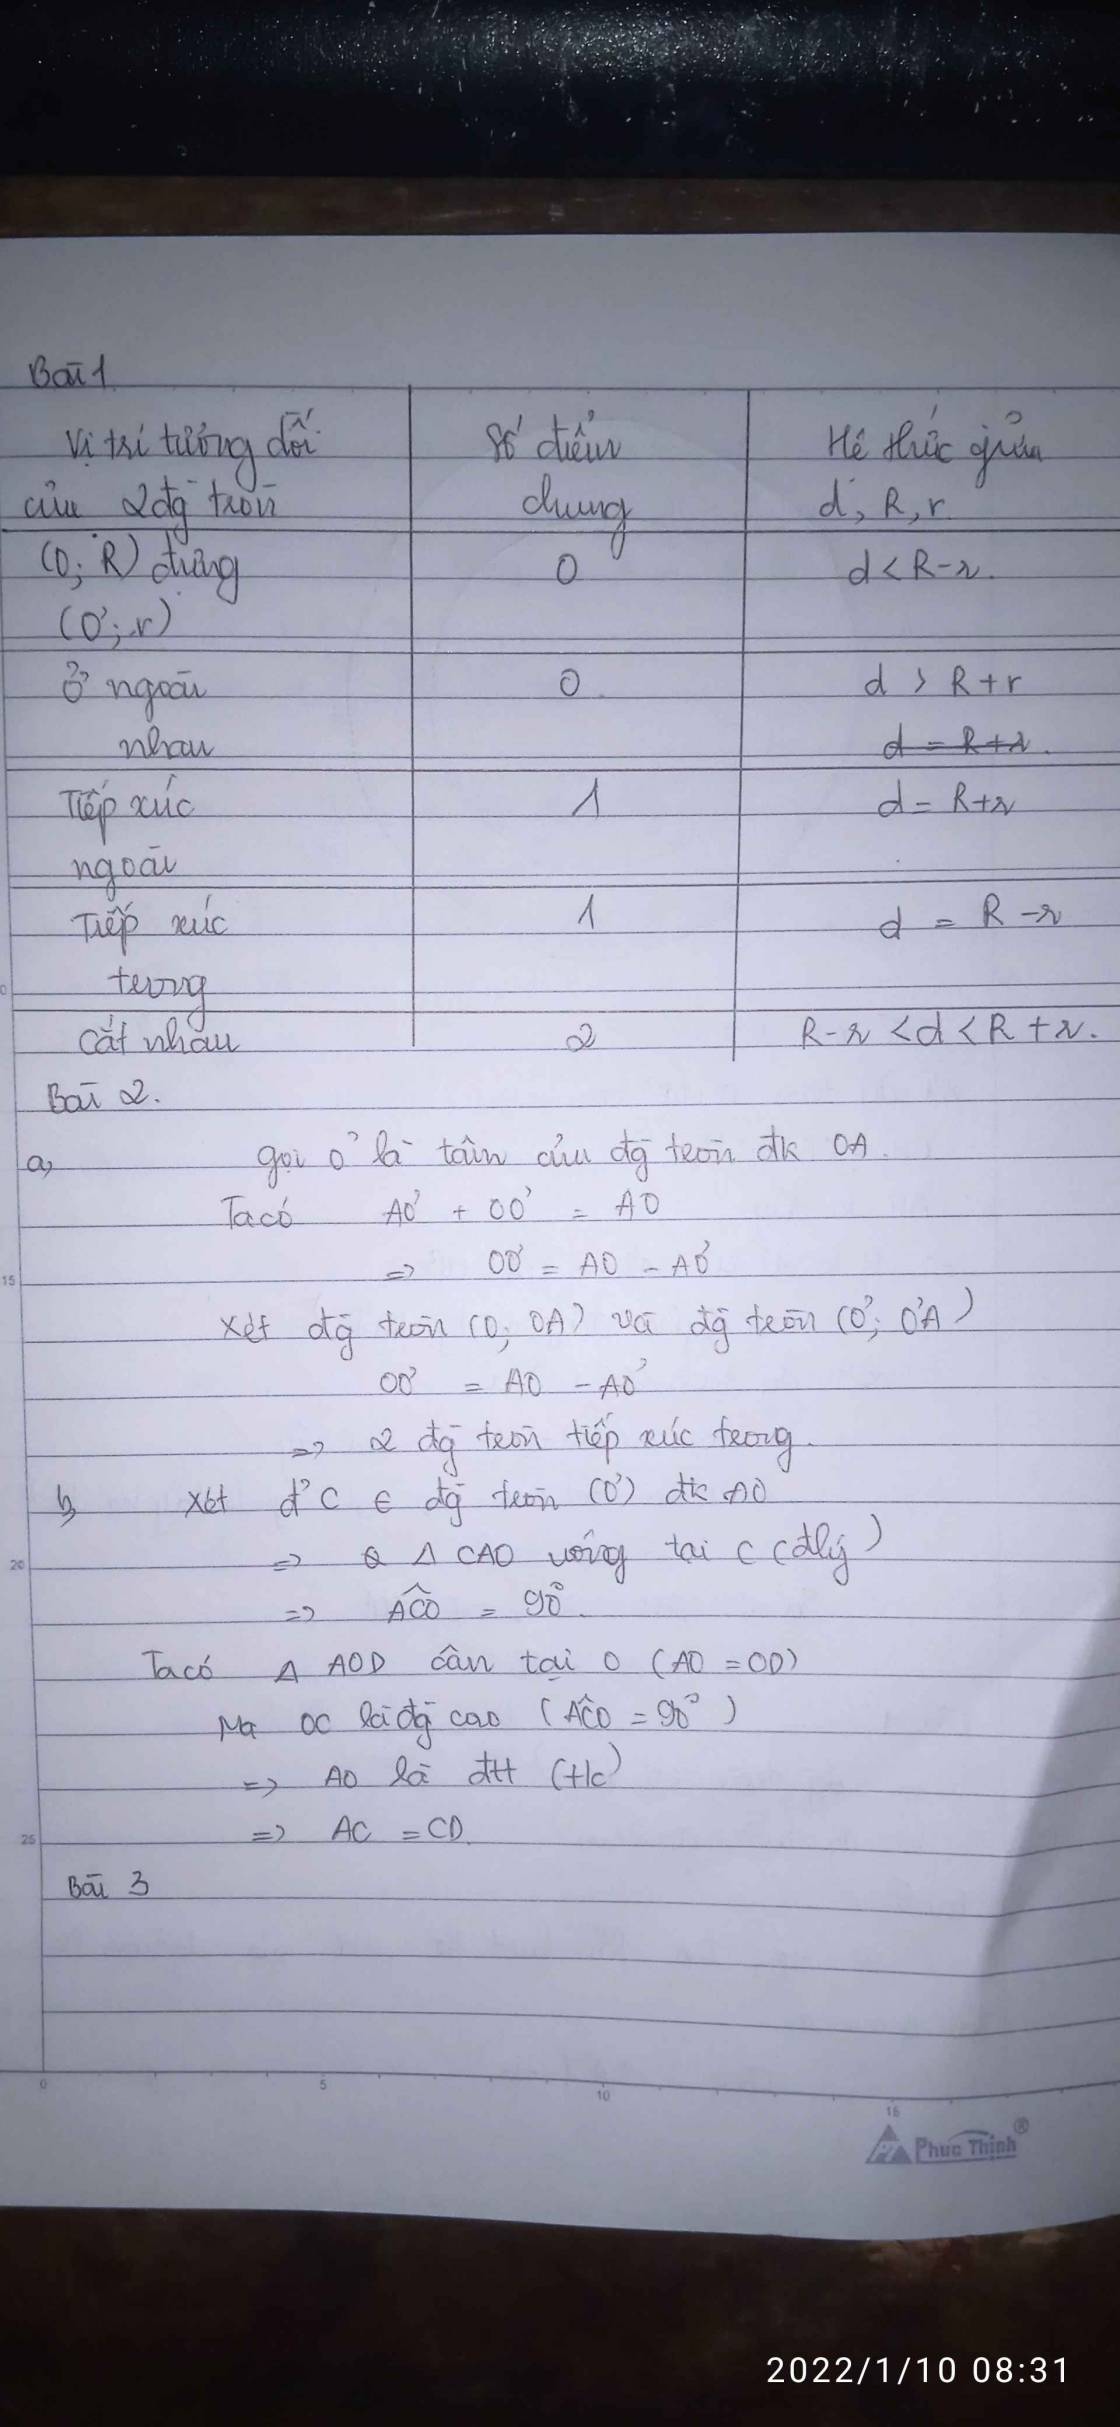 Bài 1
Vị trí tương đối Số điểm Hệ thức giữa
của 2 đg tròn chung d, R, r
(O; R) đựng 0 d < R-r.
(O'; r)
Ở ngoài 0. d > R+r
nhau d = R+r.
Tiếp xúc 1 d = R+r
ngoài
Tiếp xúc 1 d = R-r
trong
Cắt nhau 2 R-r < d < R+r.
Bài 2.
a, gọi O' là tâm của đg tròn đk OA.
Ta có AO' + OO' = AO
=> OO' = AO - AO'
Xét đg tròn (O; OA) và đg tròn (O'; O'A)
OO' = AO - AO'
=> 2 đg tròn tiếp xúc trong.
b, Xét đ' C ∈ đg tròn (O') đk AO
=> Δ CAO vuông tại C (đlý)
=> ACO = 90°.
Ta có Δ AOD cân tại O (AO = OD)
Mà OC là đg cao (ACO = 90°)
=> AO là đtt (t/c)
=> AC = CD.
Bài 3
15
20
25
0 5 10 15
Phuc Thinh®
2022/1/10 08:31